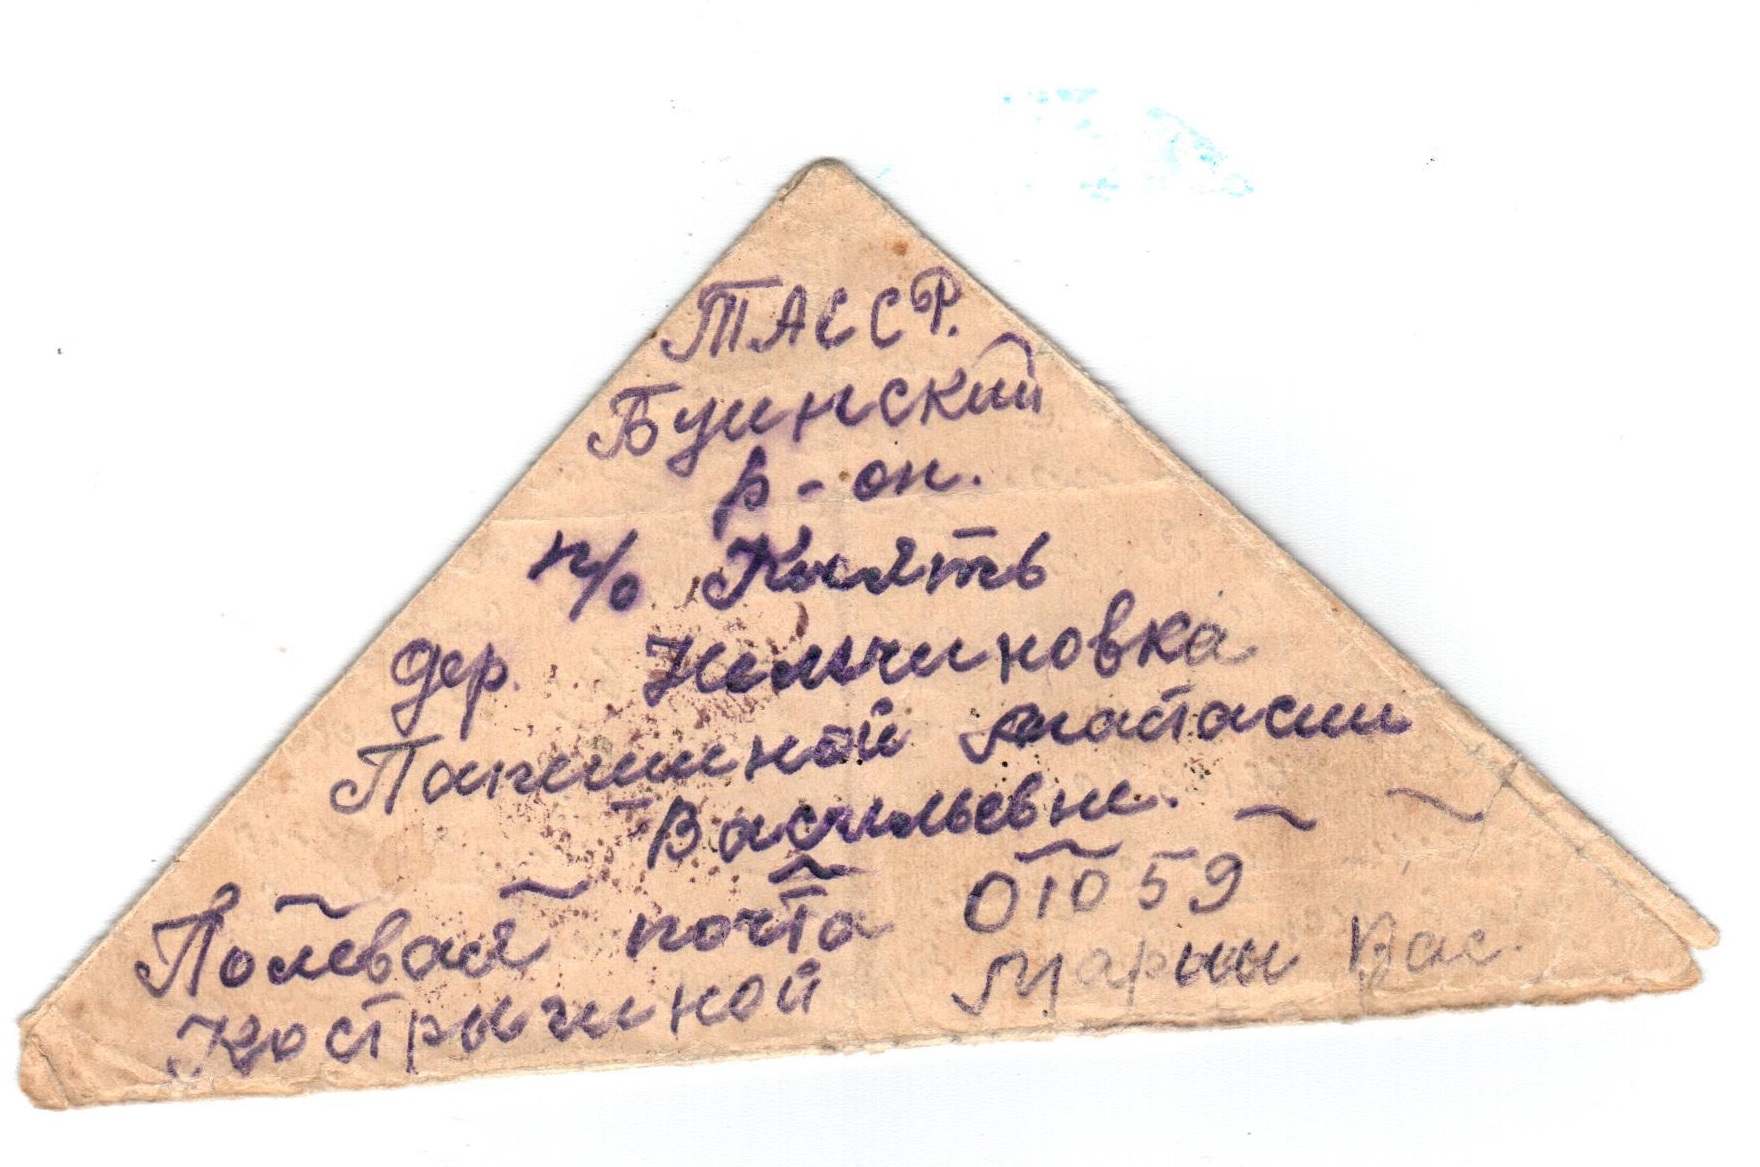 ТАССР.
Буинский
р-он.
п/о Киять
дер. Нельчиновка
Паншиной Анастасии
Васильевне.
Полевая почта 01059
Кострычиной Марии Вас.